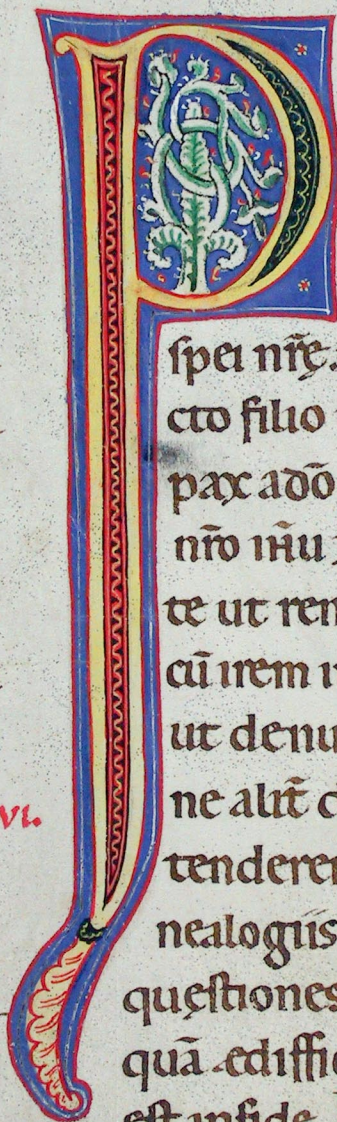 P
spei nr̄ę.
cto filio
pax adō
nr̄o ih̄u
te ut rem
cū irem i
ut denu
ne alit̄ c
tenderen
vi.
nealogiis
quęstiones
quā ędiffic
est in fide